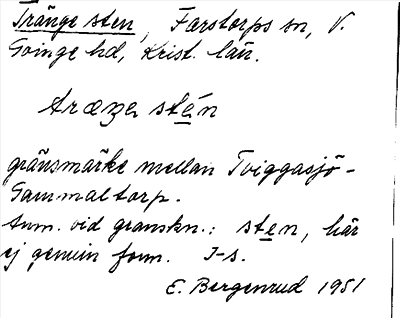 Trånge sten, Farstorps sn, V.
Göinge hd, Krist. län.
stén
gränsmärke mellan Tviggasjö-
Gammaltorp.
Anm. vid granskn.: sten, här
ej genuin form. I-s.
E. Bergenrud 1951